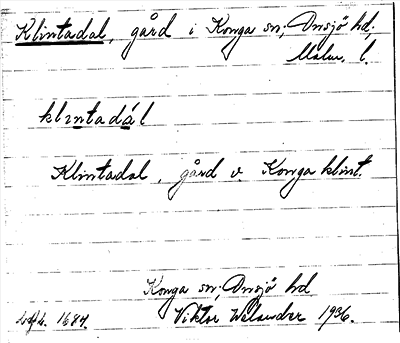 Klintadal, gård i Konga sn; Onsjö hd;
Malm. l.
klintadál
Klintadal, gård v. Konga klint.
Konga sn; Onsjö hd
1684. Viktor Welander 1936.